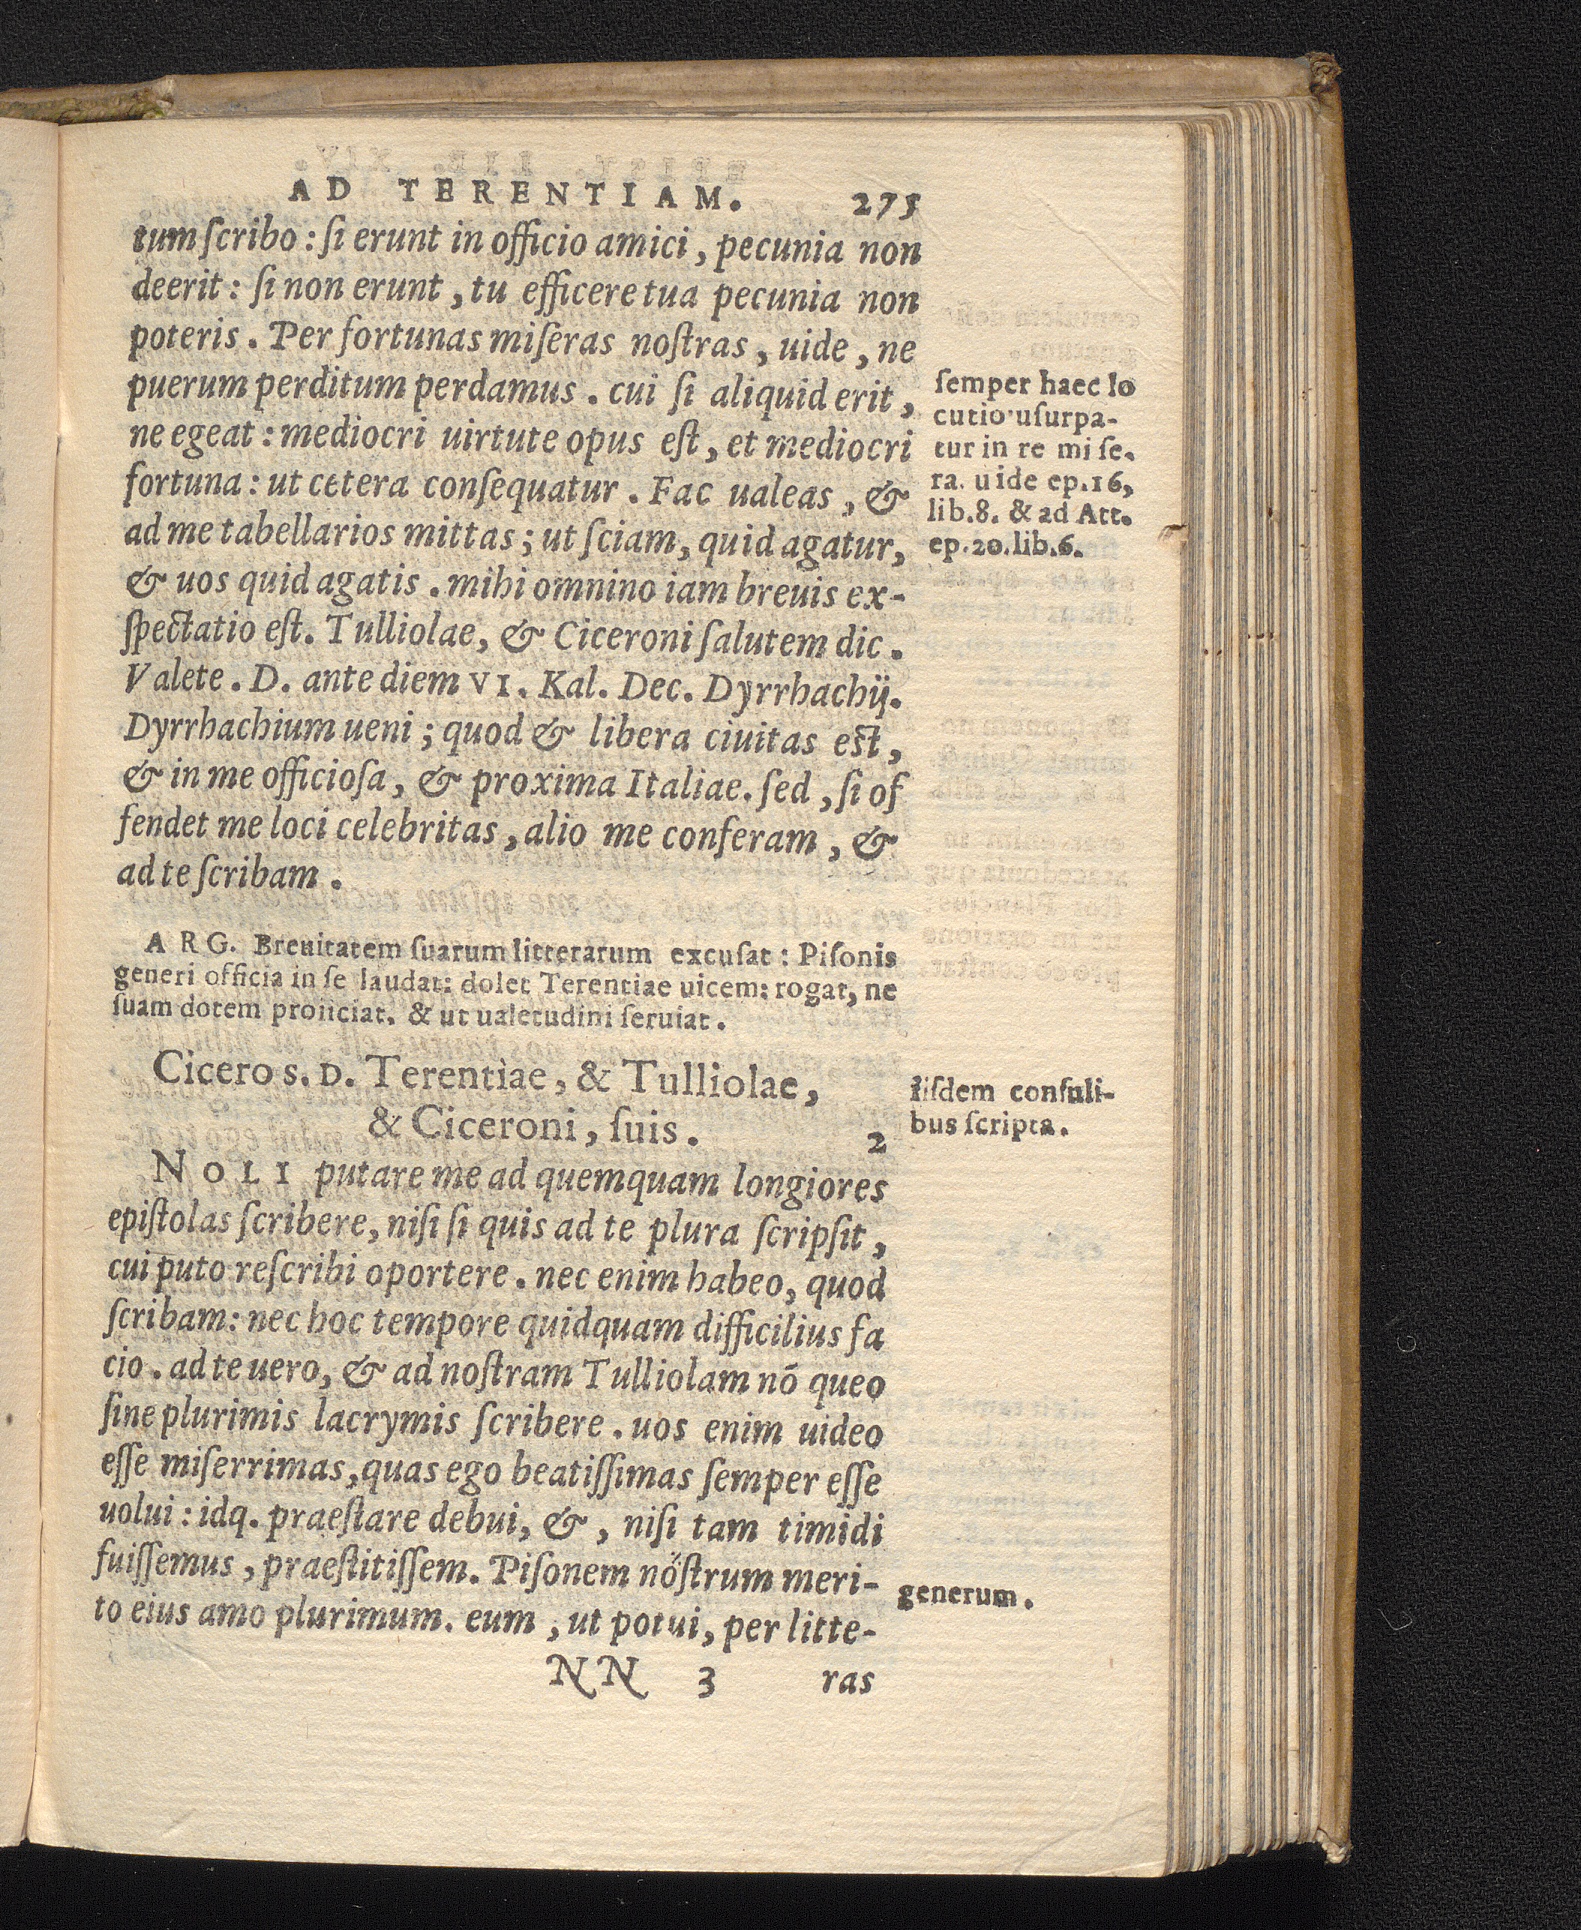 AD TERENTIAM. 275
tum ſcribo : ſi erunt in officio amici, pecunia non
deerit : ſi non erunt, tu efficere tua pecunia non
poteris. Per fortunas miſeras noſtras, uide, ne
puerum perditum perdamus. cui ſi aliquid erit,
ne egeat : mediocri uirtute opus eſt, et mediocri
fortuna : ut cetera conſequatur. Fac ualeas, &
ad me tabellarios mittas ; ut ſciam, quid agatur,
& uos quid agatis. mihi omnino iam breuis ex-
ſpectatio eſt. Tulliolae, & Ciceroni ſalutem dic.
Valete. D. ante diem VI. Kal. Dec. Dyrrhachij.
Dyrrhachium ueni ; quod & libera ciuitas eſt,
& in me officioſa, & proxima Italiae. ſed, ſi of
fendet me loci celebritas, alio me conferam, &
ad te ſcribam.
ſemper haec lo
cutio uſurpa-
tur in re mi ſe.
ra. uide ep.16,
lib.8. & ad Att.
ep.20.lib.6.
ARG. Breuitatem ſuarum litterarum excuſat : Piſonis
generi officia in ſe laudat: dolet Terentiae uicem: rogat, ne
ſuam dotem proiiciat. & ut ualetudini ſeruiat.
Cicero s. D. Terentiae, & Tulliolae,
& Ciceroni, ſuis. 2
iiſdem conſuli-
bus ſcripta.
NOLI putare me ad quemquam longiores
epiſtolas ſcribere, niſi ſi quis ad te plura ſcripſit,
cui puto reſcribi oportere. nec enim habeo, quod
ſcribam: nec hoc tempore quidquam difficilius fa
cio. ad te uero, & ad noſtram Tulliolam nō queo
ſine plurimis lacrymis ſcribere. uos enim uideo
eſſe miſerrimas, quas ego beatiſſimas ſemper eſſe
uolui : idq. praeſtare debui, &, niſi tam timidi
fuiſſemus, praeſtitiſſem. Piſonem noſtrum meri-
to eius amo plurimum. eum, ut potui, per litte-
generum.
NN 3 ras